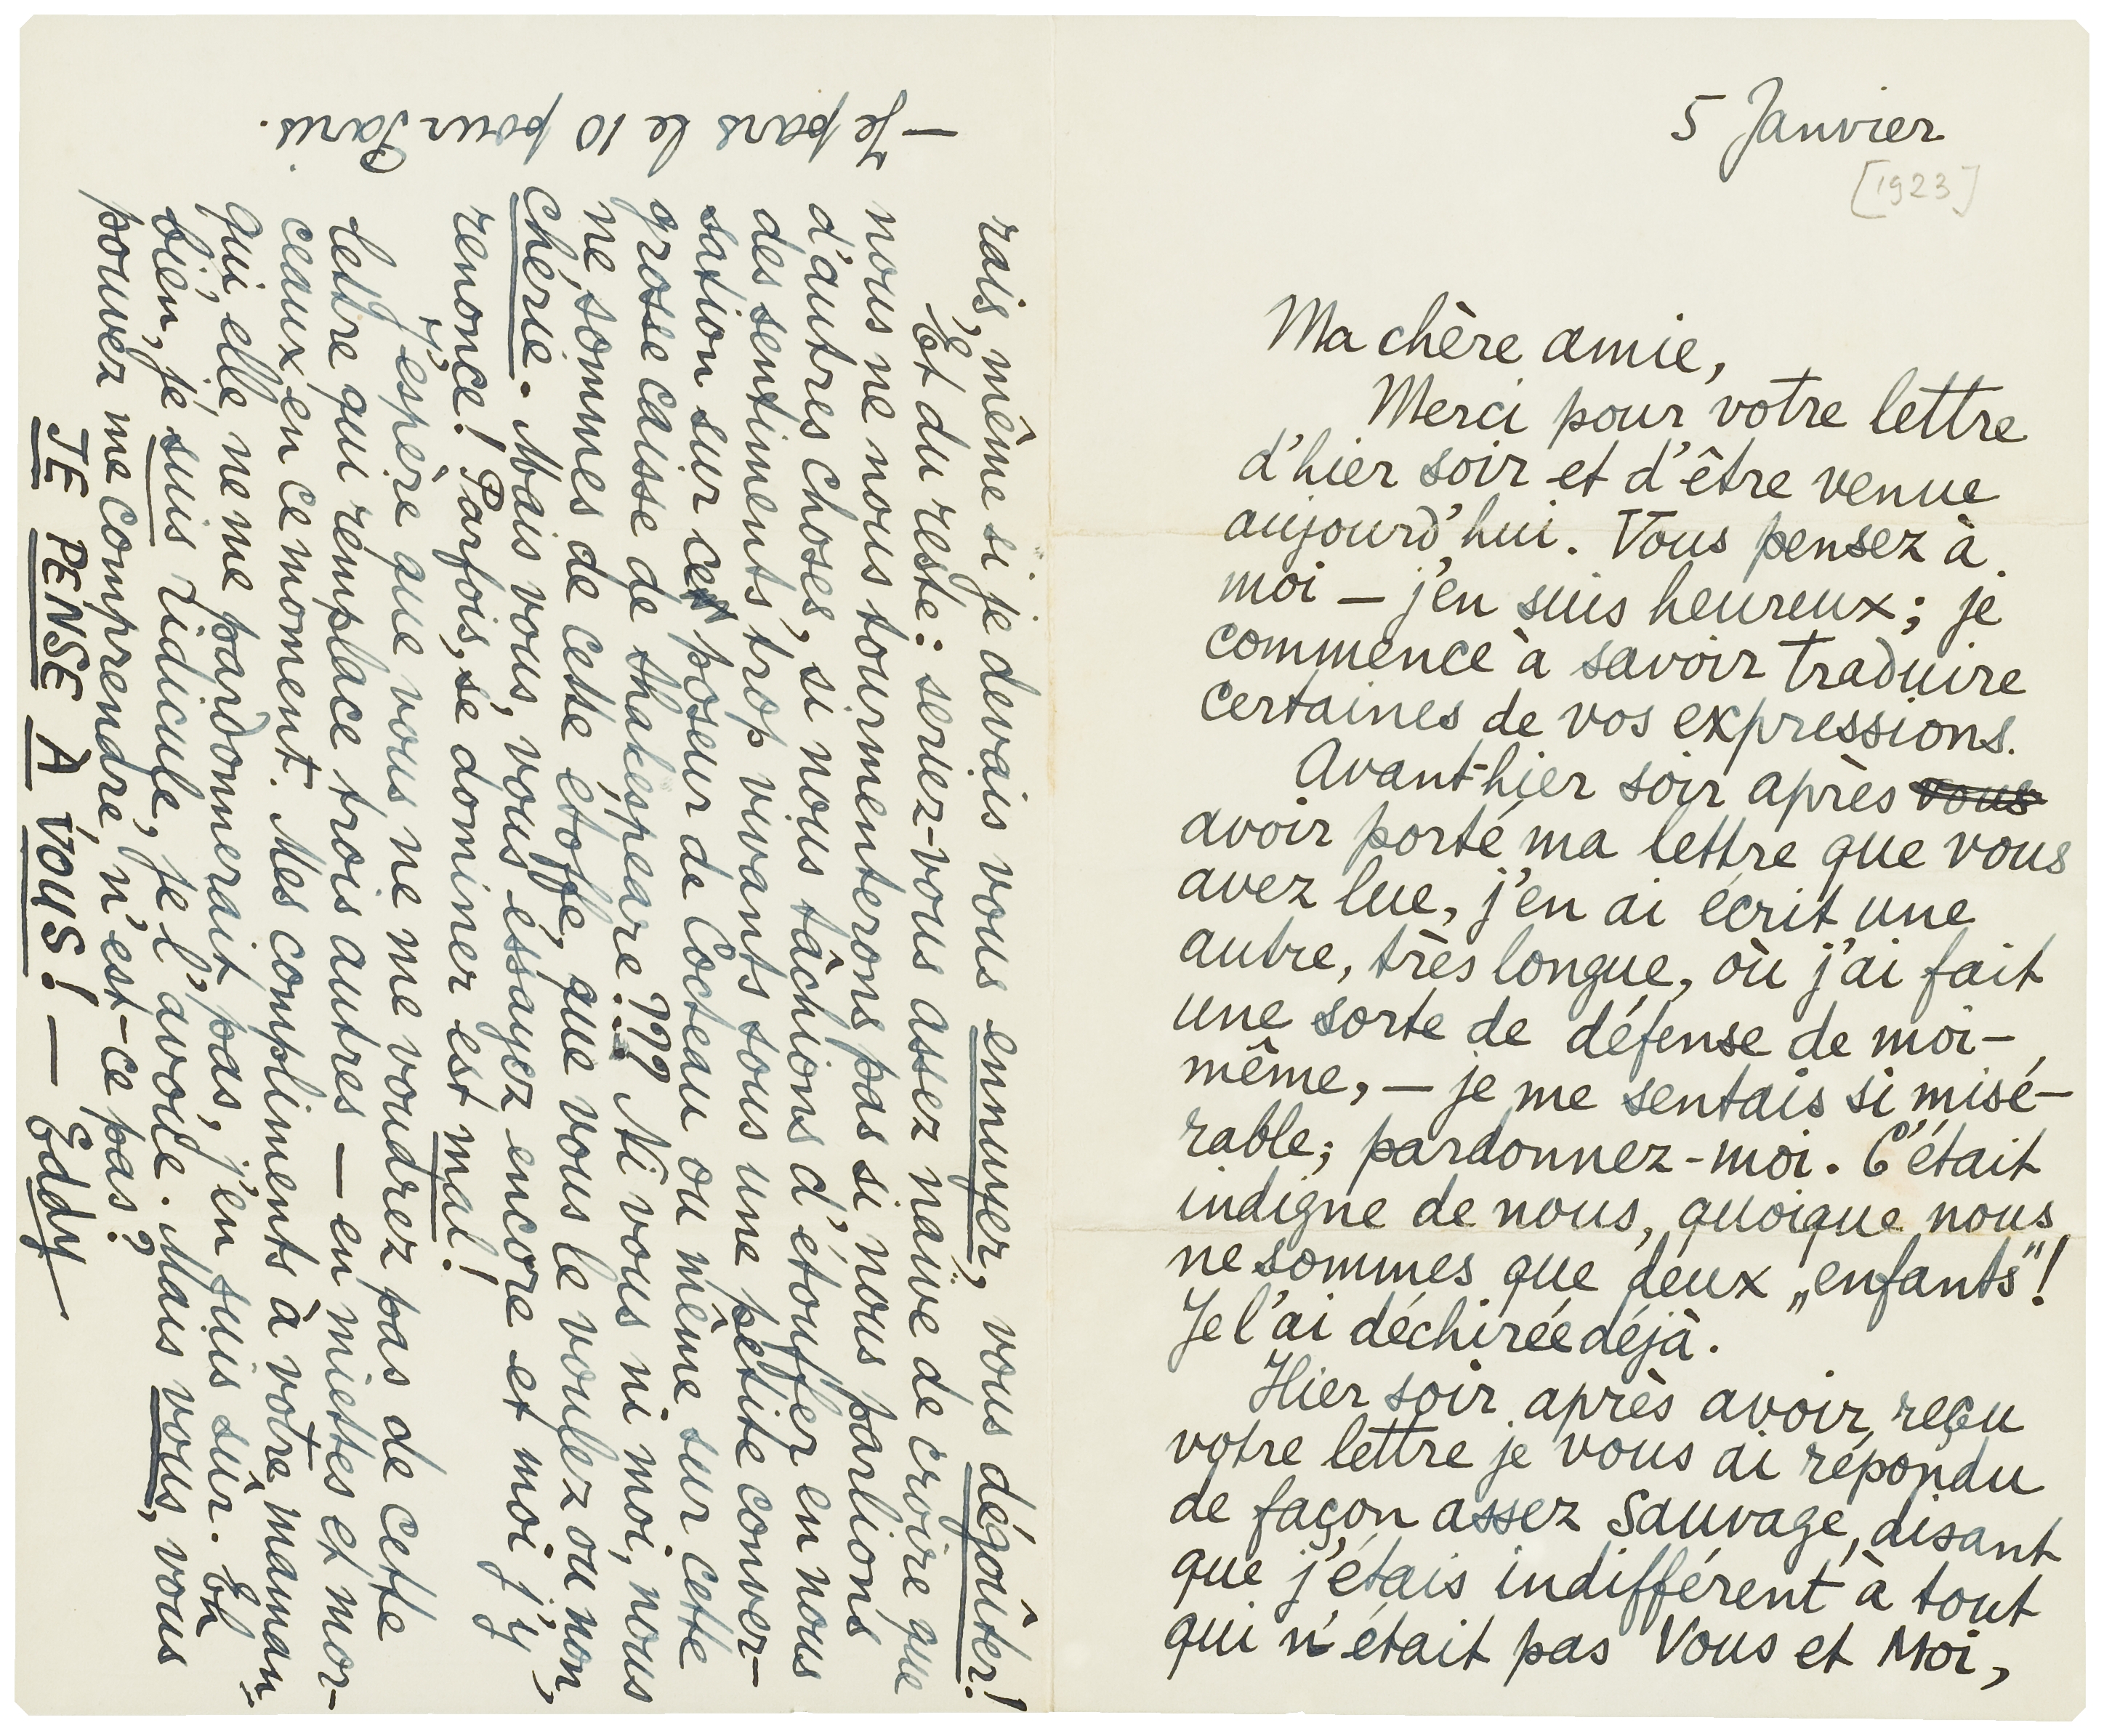 5 Janvier
[1923]
Ma chère amie,
Merci pour votre lettre
d'hier soir et d'être venue
aujourd'hui. Vous pensez à
moi — j'en suis heureux; je
commence à savoir traduire
certaines de vos expressions.
Avant-hier soir après vous
avoir porté ma lettre que vous
avez lue, j'en ai écrit une
autre, très longue, où j'ai fait
une sorte de défense de moi-
même, — je me sentais si misé-
rable; pardonnez-moi. C'était
indigne de nous, quoique nous
ne sommes que deux „enfants"!
Je l'ai déchirée déjà.
Hier soir après avoir reçu
votre lettre je vous ai répondu
de façon assez sauvage, disant
que j'étais indifférent à tout
qui n'était pas Vous et Moi,
rais, même si je devais vous ennuyer, vous dégoûter!
Et du reste: seriez-vous assez naïve de croire que
nous ne nous tourmenterons pas si nous parlions
d'autres choses, si nous tâchions d'étouffer en nous
des sentiments trop vivants sous une petite conver-
sation sur ces poseur de Cocteau ou même sur cette
grosse caisse de Shakespeare??? Ni vous ni moi, nous
ne sommes de cette étoffe, que vous le voulez ou non,
chérie. Mais vous, vous essayez encore et moi j'y
renonce! Parfois, se dominer est mal!
J'espère que vous ne me voudrez pas de cette
lettre qui remplace trois autres — en miettes et mor-
ceaux en ce moment. Mes compliments à votre maman
qui, elle, ne me pardonnerait pas, j'en suis sûr. Eh
bien, je suis ridicule, je l'avoue. Mais vous, vous
pouvez me comprendre, n'est-ce pas?
JE PENSE À VOUS! — Eddy
— Je pars le 10 pour Paris.